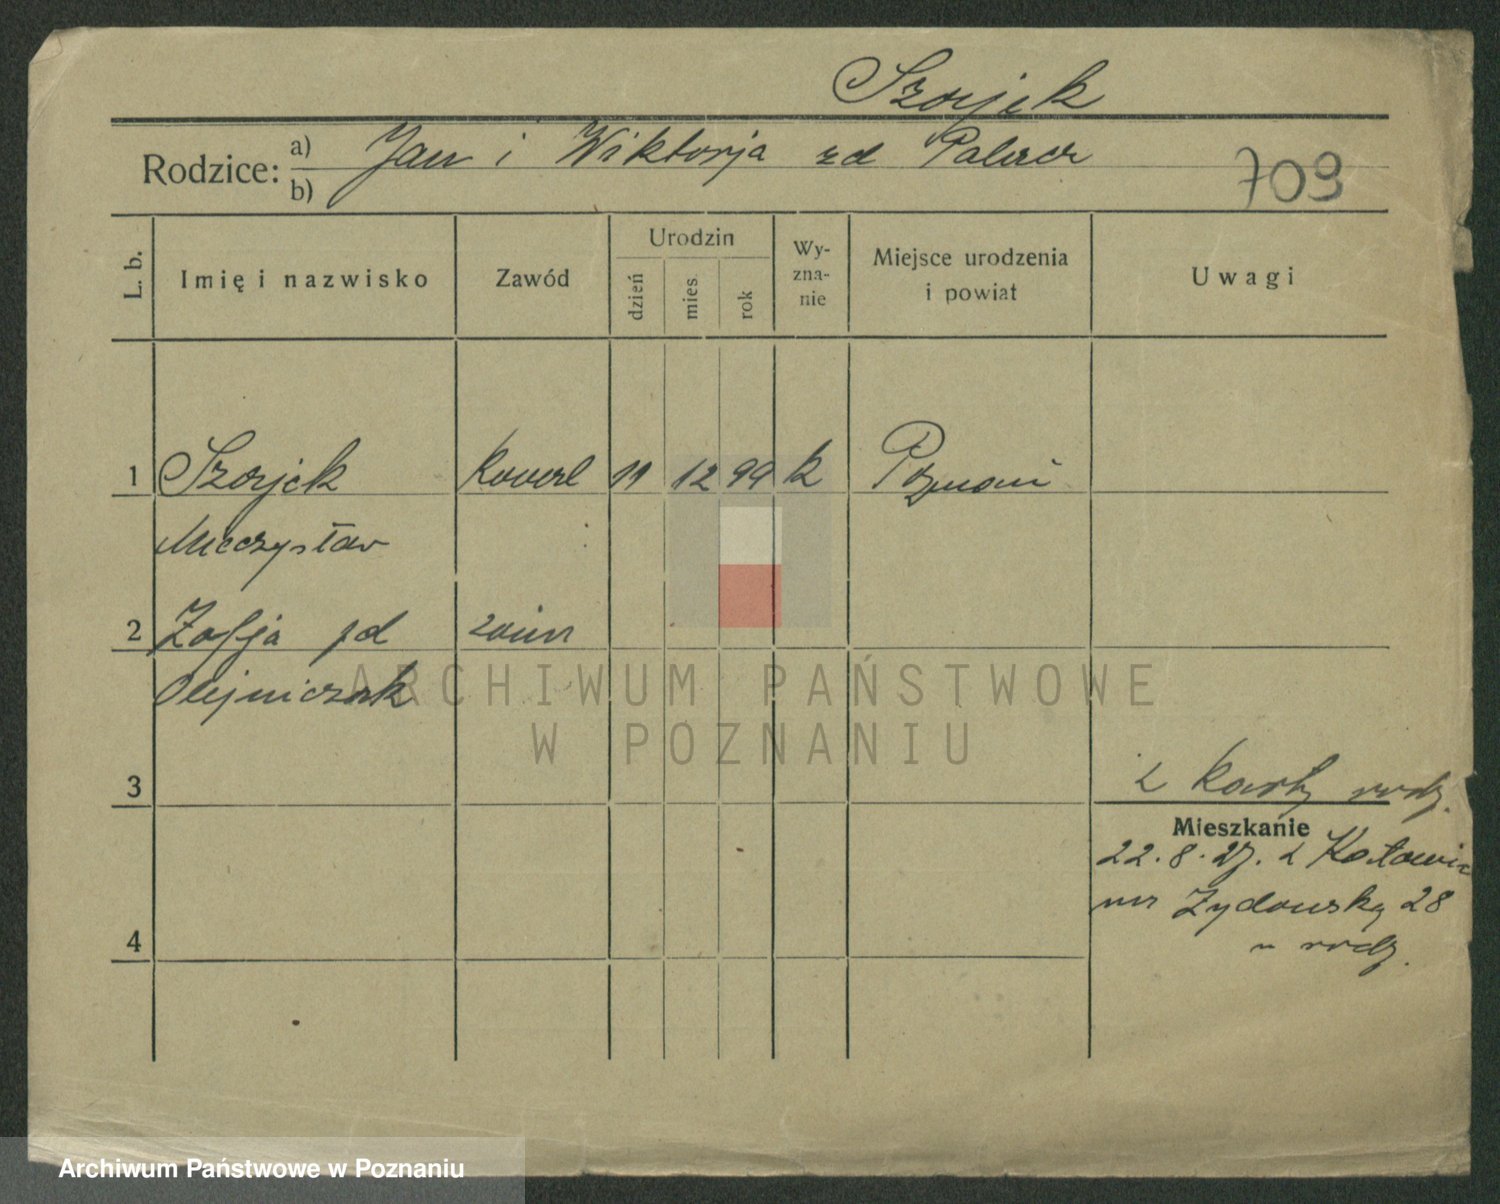 Szorjek
Rodzice: a) Jan i Wiktorja zd Palacz
b)
709
L. b. Imię i nazwisko Zawód Urodzin dzień mies. rok Wyznanie Miejsce urodzenia i powiat Uwagi
1 Szorjek 11 12 99 k Poznań
Mieczysław
2 Zofja zd
Olejniczak
3
z karty rodz.
Mieszkanie
22.8.27. z Katowic
Żydowska 28
u rodz.
4
ARCHIWUM PAŃSTWOWE
W POZNANIU
Archiwum Państwowe w Poznaniu